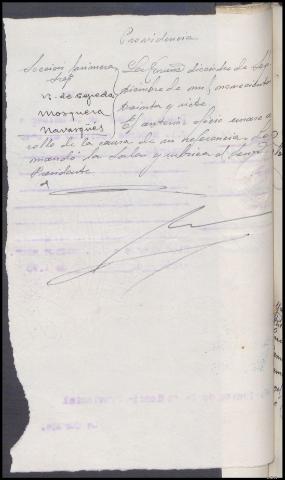 Providencia
Seccion primera
Sres
V. de Cepeda
Mosquera
Navasqués
La Coruña diecisiete de Sep
tiembre de mil novecientos
treinta y siete
El anterior oficio unase a
rollo de la causa de su referencia. Lo
mandó la Sala y rubrica el Señor
Presidente